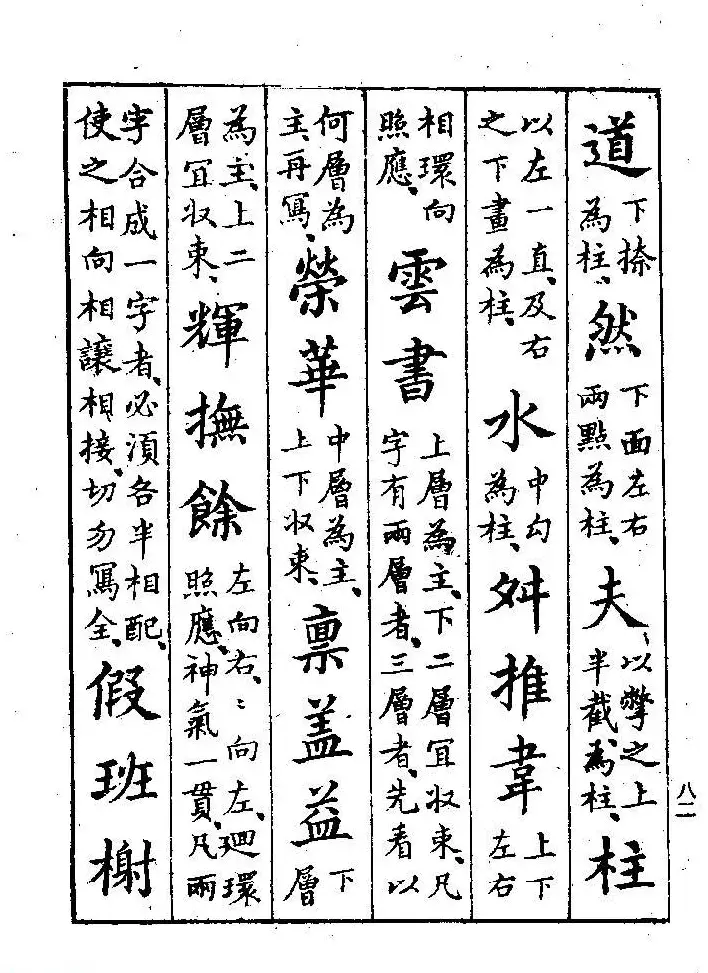 道下捺為柱、然下面左右兩點為柱、夫、以撆之上半截為柱、柱
以左一直、及右之下畫為柱、水中勾為柱、舛推韋上下左右
相環向照應、雲書上層為主、下二層冝収束、凡字有兩層者、三層者、先看以
何層為主、再寫、榮華中層為主、上下収束、禀盖益下層
為主、上二層冝収束、輝撫餘左向右、〻向左、廻環照應、神氣一貫、凡兩
字合成一字者、必須各半相配、使之相向相讓相接、切勿寫全、假班榭
八二